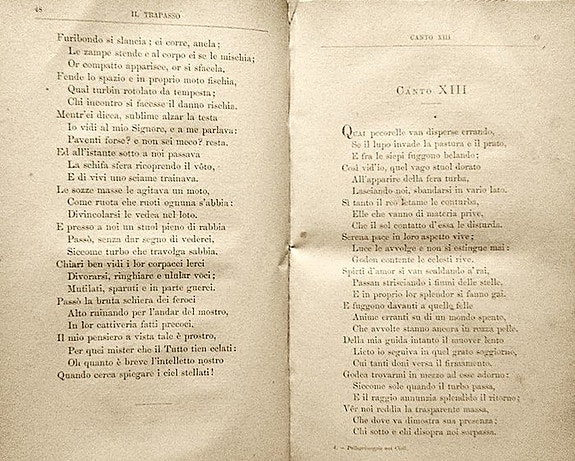 48
IL TRAPASSO
Furibondo si slancia; ei corre, anela;
Le zampe stende e al corpo ei se le mischia;
Or compatto apparisce, or si sfacela,
Fende lo spazio e in proprio moto fischia,
Qual turbin rotolato da tempesta;
Chi incontro si facesse il danno rischia.
Mentr'ei dicea, sublime alzar la testa
Io vidi al mio Signore, e a me parlava:
Paventi forse? e non sei meco? resta.
Ed all'istante sotto a noi passava
La schifa sfera ricoprendo il vôto,
E di vivi uno sciame trainava.
Le sozze masse le agitava un moto,
Come ruota che ruoti ognuna s'abbia:
Divincolarsi le vedea nel loto.
E presso a noi un stuol pieno di rabbia
Passò, senza dar segno di vederci,
Siccome turbo che travolga sabbia.
Chiari ben vidi i lor corpacci lerci
Divorarsi, ringhiare e ulular voci;
Mutilati, sparuti e in parte guerci.
Passò la bruta schiera dei feroci
Alto ruinando per l'andar del mostro,
In lor cattiveria fatti precoci.
Il mio pensiero a vista tale è prostro,
Per quei mister che il Tutto tien celati:
Oh quanto è breve l'intelletto nostro
Quando cerca spiegare i ciel stellati!
CANTO XIII
49
CANTO XIII
Quai pecorelle van disperse errando,
Se il lupo invade la pastura e il prato,
E fra le siepi fuggono belando;
Così vid'io, quel vago stuol dorato
All'apparire della fera turba,
Lasciando noi, sbandarsi in vario lato.
Sì tanto il reo letame le conturba,
Elle che vanno di materia prive,
Che il sol contatto d'essa le disturba.
Serena pace in loro aspetto vive;
Luce le avvolge e non si estingue mai:
Godon contente le celesti rive.
Spirti d'amor si van scaldando a' rai,
Passan strisciando i fiumi delle stelle,
E in proprio lor splendor si fanno gai.
E fuggono davanti a quelle felle
Anime erranti su di un mondo spento,
Che avvolte stanno ancora in rozza pelle.
Della mia guida intanto il rimover lento
Lieto io seguiva in quel grato soggiorno,
Cui tanti doni versa il firmamento.
Godea trovarmi in mezzo ad esse adorno:
Siccome sole quando il turbo passa,
E il raggio annunzia splendido il ritorno;
Vêr noi reddia la trasparente massa,
Che dove va dimostra sua presenza;
Chi sotto e chi disopra noi sorpassa.
4. – Pellegrinaggio nei Cieli.